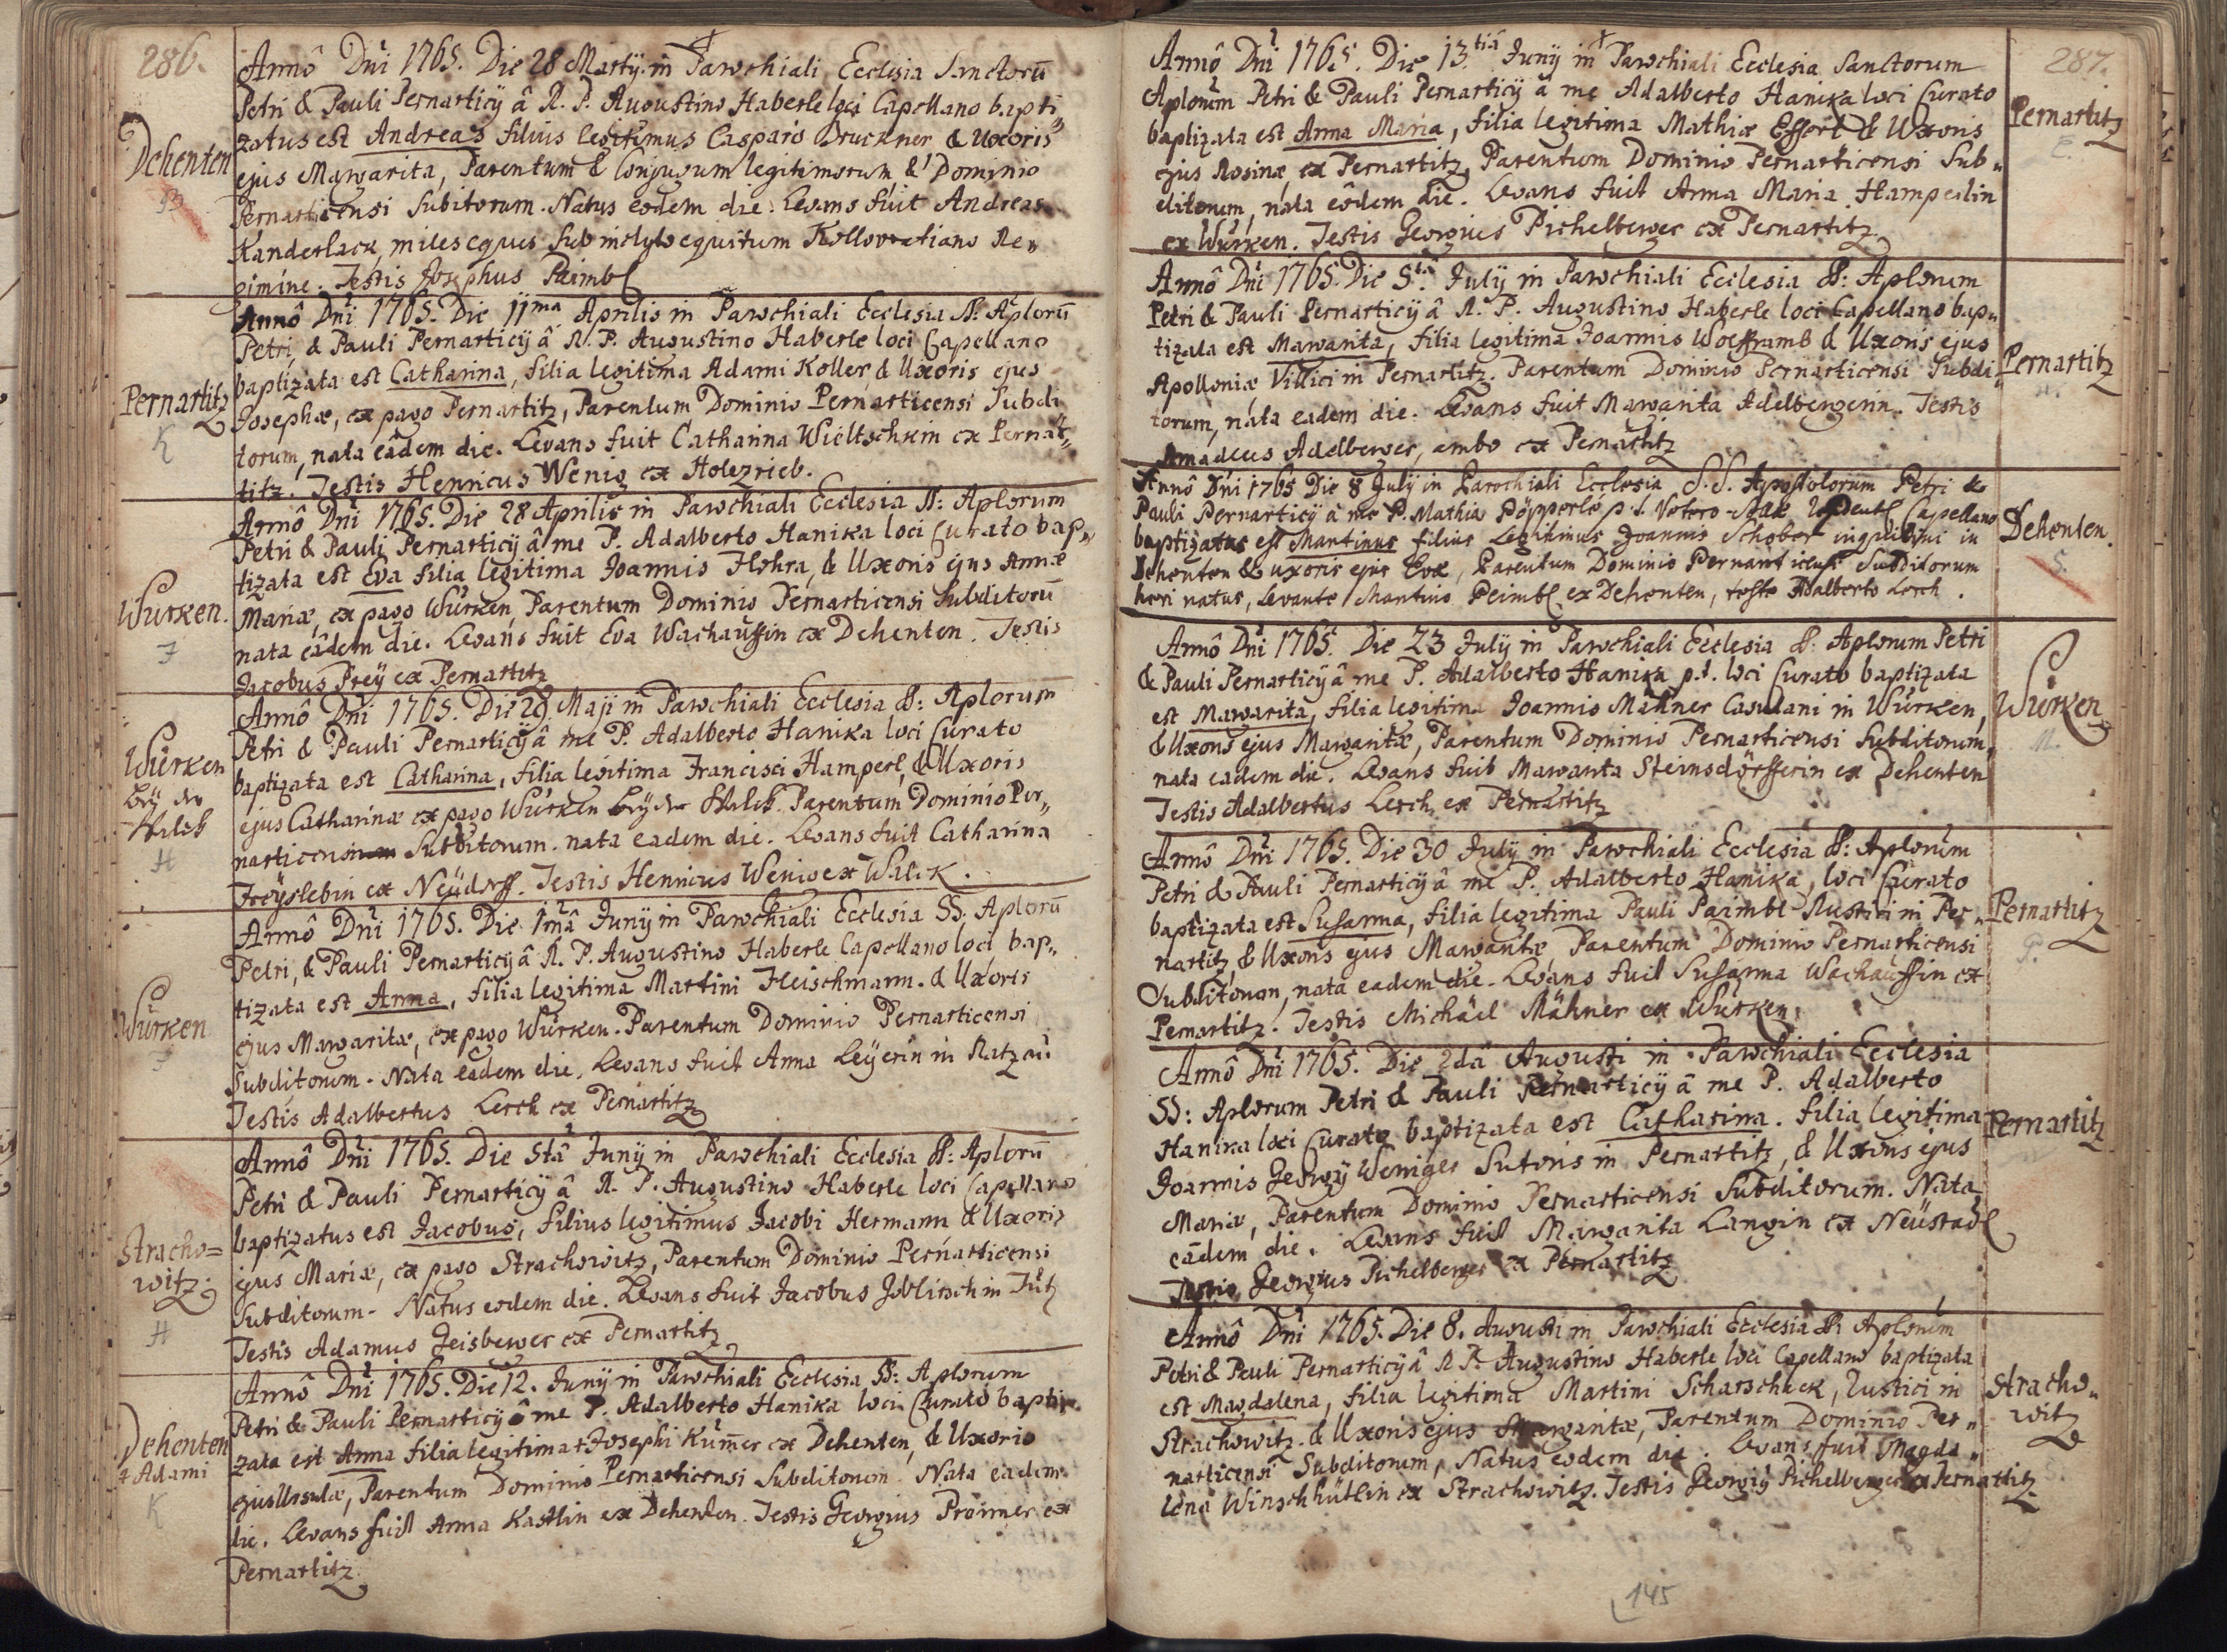 286.
Dehenten
B
Annô Dni 1765. Die 28 Martÿ. in Parochiali Ecclesia Sanctorū
Petri & Pauli Pernarticÿ â R. P. Augustino Haberle loci Capellano bapti„
zatus est Andreas filius legitimus Casparis Bruckner & Uxoris
ejus Margarita, Parentum & Conjugum legitimorum & Dominio
Pernarticensi Subitorum. Natus eôdem die. Levans fuit Andreas
Kanderlack, miles eques sub inclyto equitum Kollovratiano Re„
gimine. Testis Josephus Paimbl
Pernartitz
K
Annô Dni 1765. Die 11ma Aprilis in Parochiali Ecclesia SS. Aplorū
Petri, & Pauli Pernarticÿ â R. P. Augustino Haberle loci Capellano
baptizata est Catharina, filia legitima Adami Koller, & Uxoris ejus
Josephæ, ex pago Pernartitz, Parentum Dominio Pernarticensi Subdi
torum, nata eâdem die. Levans fuit Catharina Wieltschkin ex Pernar„
titz. Testis Henricus Wenig ex Holezrieb.
Würken.
F
Annô Dni 1765. Die 28 Aprilis in Parochiali Ecclesia SS: Aplorum
Petri & Pauli Pernarticÿ â me P. Adalberto Hanika loci Curato bap„
tizata est Eva filia legitima Joannis Flohra, & Uxoris ejus Annæ
Mariæ, ex pago Würken, Parentum Dominio Pernarticensi Subditorū
nata eâdem die. Levans fuit Eva Wachaussin ex Dehenten. Testis
Jacobus Preÿ ex Pernartitz
Würken
beÿ der
H
Annô Dni 1765. Die 29. Maji in Parochiali Ecclesia SS: Aplorum
Petri & Pauli Pernarticÿ â me P. Adalberto Hanika loci Curato
baptizata est Catharina, filia legitima Francisci Hamperl, & Uxoris
ejus Catharinæ ex pago Würken beÿ der Parentum Dominio Per„
narticensi Subditorum. nata eadem die. Levans fuit Catharina
Freÿslebin ex Neüdorff. Testis Henricus Wenig ex Walck.
Würken
F
Annô Dni 1765. Die 1mâ Junÿ in Parochiali Ecclesia SS. Aplorū
Petri, & Pauli Pernarticÿ â R. P. Augustino Haberle Capellano loci bap„
tizata est Anna, filia legitima Martini Fleischmann. & Uxoris
ejus Margaritæ, ex pago Würken. Parentum Dominio Pernarticensi
Subditorum. Nata eâdem die. Levans fuit Anna Leÿerin in Ratzau
Testis Adalbertus Lerch ex Pernartitz
Stracho=
witz
H
Annô Dni 1765. Die 5tâ Junÿ in Parochiali Ecclesia SS: Aplorū
Petri & Pauli Pernarticÿ â R. P. Augustino Haberle loci Capellano
baptizatus est Jacobus, filius legitimus Jacobi Hermann & Uxoris
ejus Mariæ, ex pago Strachowitz, Parentum Dominio Pernarticensi
Subditorum. Natus eodem die. Levans fuit Jacobus
Testis Adamus Geisberger ex Pernartitz
Dehenten
‡ Adami
K
Annô Dni 1765. Die 12. Junÿ in Parochiali Ecclesia SS: Aplorum
Petri & Pauli Pernarticÿ â me P. Adalberto Hanika loci Curato bapti
zata est Anna filia legitima ‡ Josephi Kum̄er ex Dehenten, & Uxoris
ejus Ursulæ, Parentum Dominio Pernarticensi Subditorum. Nata eadem
die. Levans fuit Anna Kastlin ex Dehenten. Testis Georgius Proimer ex
Pernartitz
287.
Annô Dni 1765. Die 13.tiâ Junÿ in Parochiali Ecclesia Sanctorum
Aplorum Petri & Pauli Pernarticÿ â me Adalberto Hanika loci Curato
baptizata est Anna Maria, filia legitima Mathiæ Effert & Uxoris
ejus Rosinæ, ex Pernartitz, Parentum Dominio Pernarticensi Sub„
ditorum, nata eôdem die. Levans fuit Anna Maria Hamperlin
ex Würken. Testis Georgius Pichelberger ex Pernartitz
Pernartitz
E.
Annô Dni 1765. Die 5ta Julÿ in Parochiali Ecclesia SS: Aplorum
Petri & Pauli Pernarticÿ â R. P. Augustino Haberle loci Capellano bap„
tizata est Margarita, filia legitima Joannis Woefframb & Uxoris ejus
Apolloniæ Villici in Pernartitz. Parentum Dominio Pernarticensi Subdi„
torum, nata eadem die. Levans fuit Margarita Adelbergerin. Testis
Amadeus Adelberger, ambo ex Pernartitz
Pernartitz
W.
Annô Dni 1765 Die 8 Julÿ in Parochiali Ecclesia S.S. Apostolorum Petri &
Pauli Pernarticÿ â me P. Mathia Pöpperle p. t. Capellano
baptizatus est Martinus filius Legitimus Joannis Schober inquilini in
Dehenten & uxoris ejus Evæ, Parentum Dominio Pernarticensi Subditorum
heri natus, Levante Martino Peimbl ex Dehenten, teste Adalberto Lerch.
Dehenten
S.
Annô Dni 1765. Die 23 Julÿ in Parochiali Ecclesia SS: Aplorum Petri
& Pauli Pernarticÿ â me P. Adalberto Hanika p.t. loci Curato baptizata
est Margarita, filia legitima Joannis Mähner Casulani in Würken,
& Uxoris ejus Margaritæ, Parentum Dominio Pernarticensi Subditorum,
nata eadem die. Levans fuit Margarita Sternsdörfferin ex Dehenten
Testis Adalbertus Lerch ex Pernartitz
Würken
M.
Annô Dni 1765. Die 30 Julÿ in Parochiali Ecclesia SS: Aplorum
Petri & Pauli Pernarticÿ â me P. Adalberto Hanika, loci Curato
baptizata est Susanna, filia legitima Pauli Paimbl Rustici in Per„
nartitz, & Uxoris ejus Margaritæ, Parentum Dominio Pernarticensi
Subditorum, nata eadem die. Levans fuit Susanna Wachaussin ex
Pernartitz. Testis Michäel Mähner ex Würken.
Pernartitz
P.
Annô Dni 1765. Die 2dâ Augusti in Parochiali Ecclesia
SS: Aplorum Petri & Pauli Pernarticÿ â me P. Adalberto
Hanika loci Curato baptizata est Catharina. filia legitima
Joannis Georgÿ Weniger Sutoris in Pernartitz, & Uxoris ejus
Mariæ, Parentum Dominio Pernarticensi Subditorum. Nata
eâdem die. Levans fuit Margarita Langin ex Neüstadl
Testis Georgius Pichelberger ex Pernartitz
Pernartitz
Annô Dni 1765. Die 8. Augusti in Parochiali Ecclesia SS: Aplorum
Petri & Pauli Pernarticÿ â R. P. Augustino Haberle loci Capellano baptizata
est Magdalena, filia legitima Martini Scharschack, Rustici in
Strachowitz. & Uxoris ejus Margaritæ, Parentum Dominio Per„
narticensi Subditorum, Natus eodem die. Levans fuit Magda„
lena Winschhüttlin ex Strachowitz. Testis Georgiÿ Pichelberger ex Pernartitz
Stracho„
witz
145